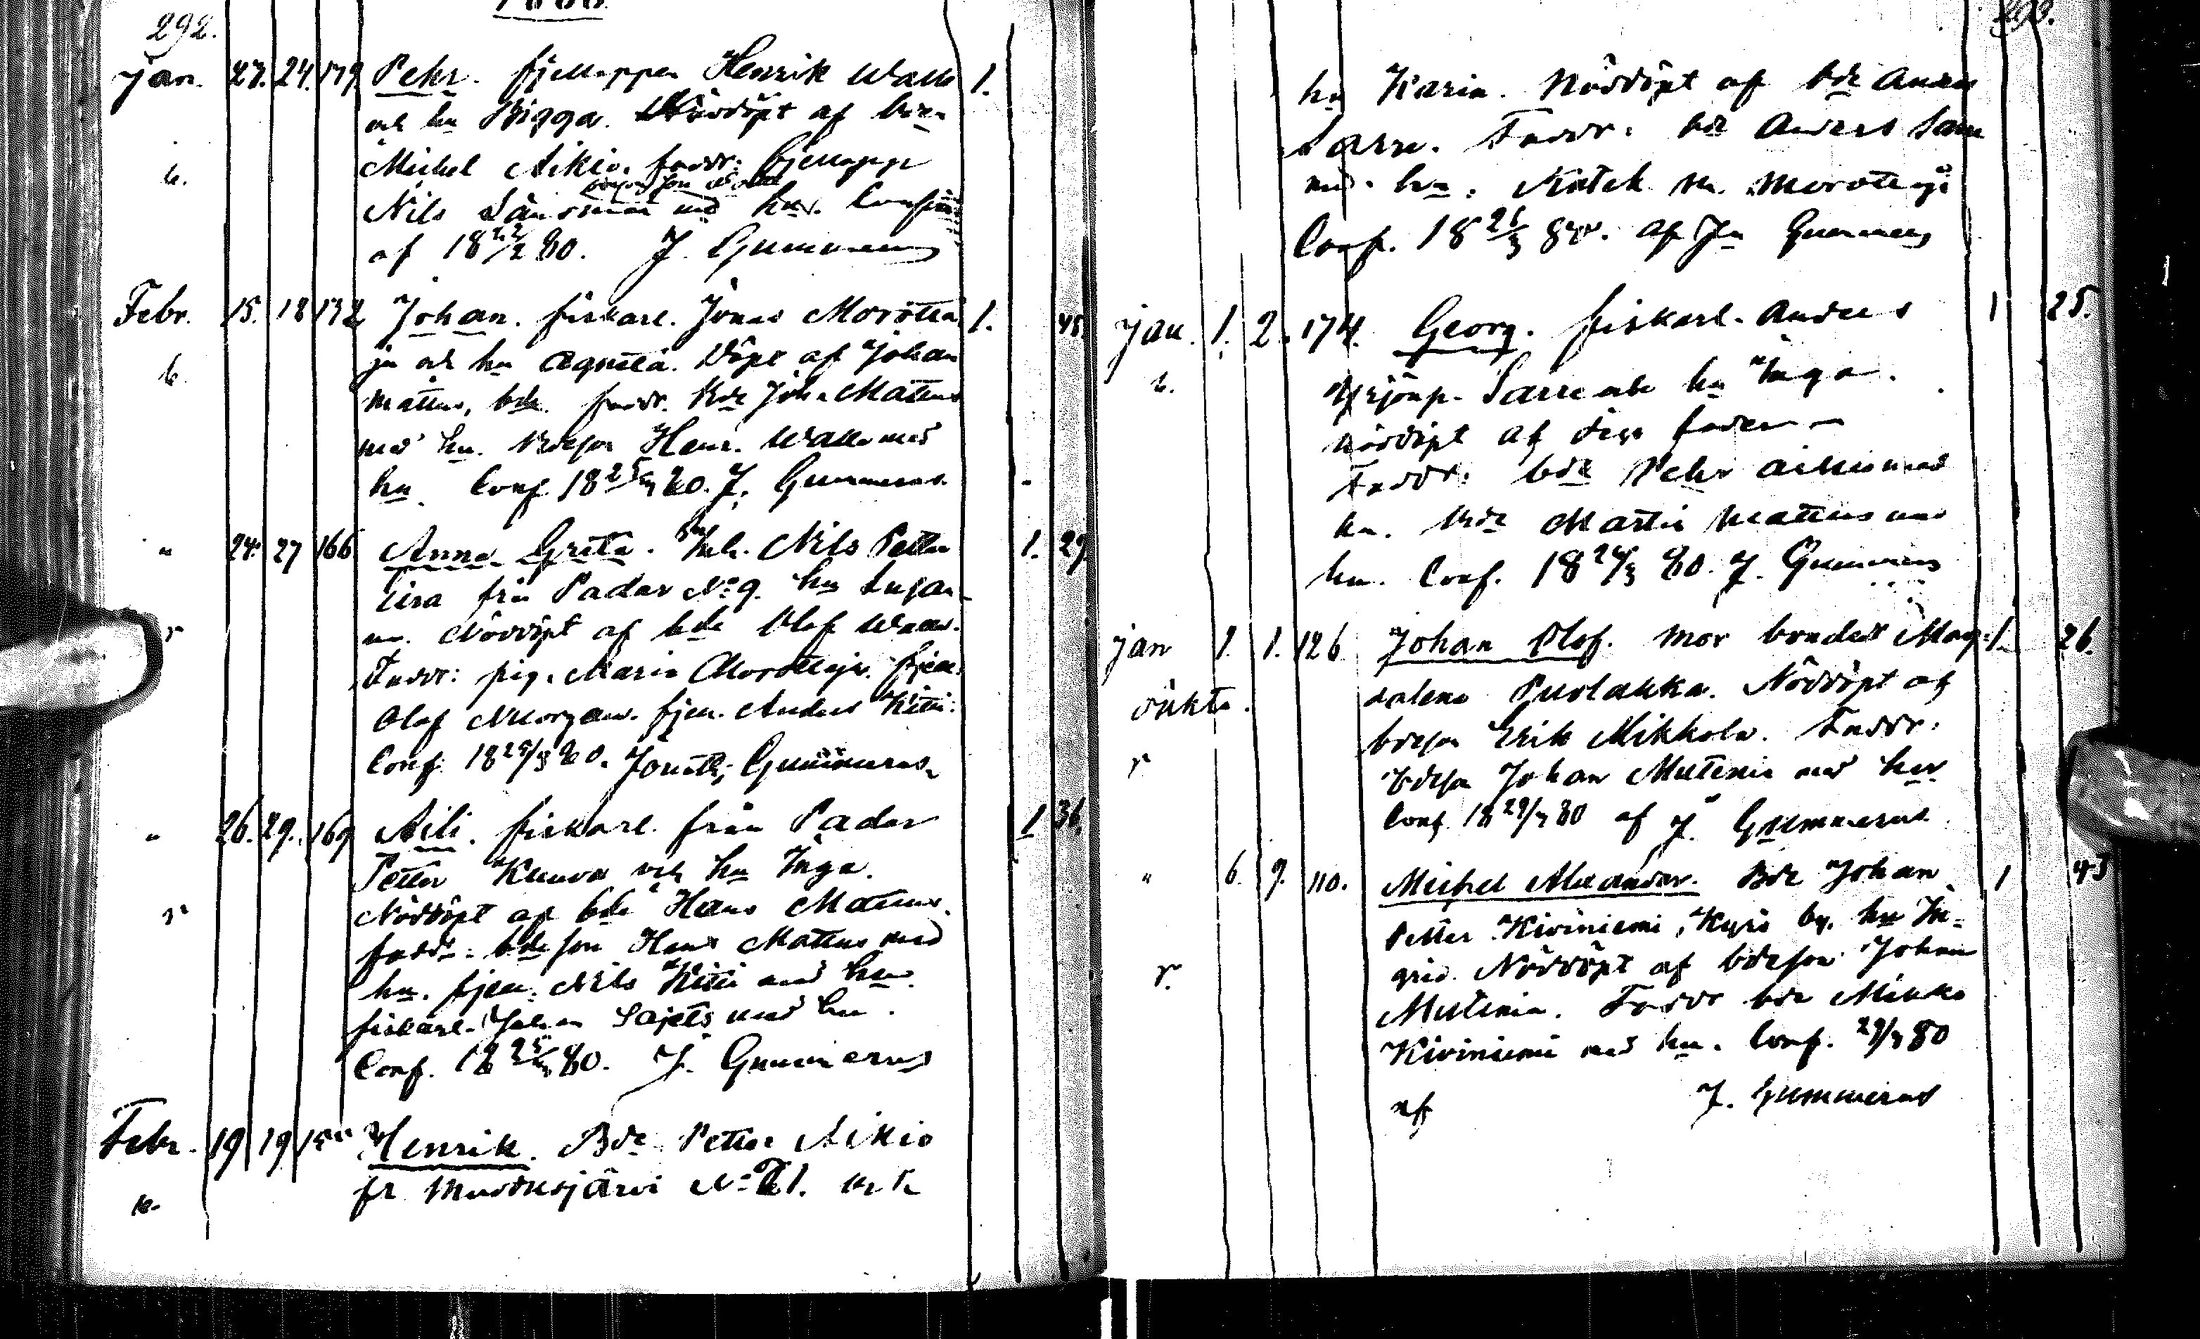 292.
Jan. 27. 24. 179 Pehr. fjellappen Henrik Walle 1.
och hu Bigga. Nöddöpt af
b. Michel Aikio. faddr: fjellapp
Nils Länsman med hu. Conf
af 18 22/2 80. J. Gummerus
Febr. 15. 18 132 Johan. fiskarl. Jonas Morotta 1. 45
ja och hu Agneta. Döpt af Johan
b. Mattus, bde. faddr. bde Joh. Mattus
med hu. bdeson Henr. Walle med
hu. Conf. 18 25/3 80. J. Gummerus.
" 24. 27 166 Anna Greta. Inh. Nils Petter 1. 29
från Padar No 9. hu Susan-
r na. Nöddöpt af bde Olof Walle.
Faddr: pig. Maria Morottaja. fjell.
Olof fjell. Anders Kitti.
Conf. 18 25/3 80. Gummerus.
" 26. 29. 169 Aili. fiskarl. från Padar 1 36
Petter Kuuva och hu Inga.
r Nöddöpt af bde Hans Mattus.
faddr: bdeson Hans Mattus med
hu. fjell. Nils Kitti med hu
fiskarl. Johan Sajets med hu.
Conf. 18 25/3 80. J. Gummerus
Febr. 19 19 Henrik. Bde Petter Aikio
b. fr Muddusjärvi No 21. och
293.
hu Karin. Nöddöpt af bde Anders
Sarre. Faddr: bde Anders Sarre
med hu: Morottaja
Conf. 18 25/3 80. af J. Gummerus
Jan. 1. 2. 174. Georg. fiskarl. Anders 1 25.
b. Sarre och hu Inga.
nöddöpt af dess fader
Faddr: bde Pehr Aikio med
hu. bde Martin Mattus med
hu. Conf. 18 24/3 80. J. Gummerus
Jan 1. 1. 126 Johan Olof. Mor bonded. Mag- 1. 26.
oäkta. dalena Purlakka. Nöddöpt af
bdeson Erik Mikkola. Faddr:
r bdeson Johan Mutenia med hu
Conf. 18 29/3 80 af J. Gummerus
" 6. 9. 110. Michel Alexander. Bde Johan 1 43
Petter Kiviniemi, Kyrö by. hu In-
r. grid. Nöddöpt af bdeson Johan
Mutenia. Faddr bde Mikko
Kiviniemi med hu. Conf. 29/3 80
af J. Gummerus